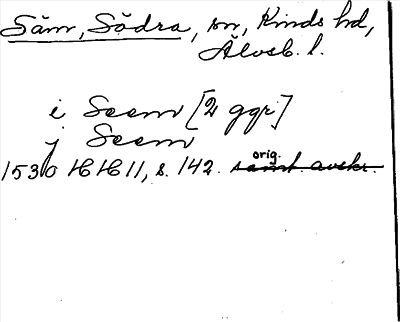 Säm, Södra, sn, Kinds hd,
Älvsb. l.
i Seem [2 ggr]
j Seem
1530 HH 11, s. 142. orig. samt. avskr.